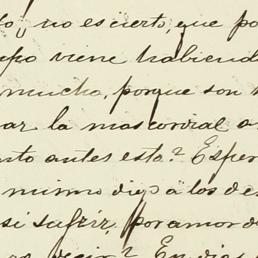 no es cierto, que po
po viene habiend
mucho, porque son
ar la mas cordial a
nto antes esto? Esper
mismo digo a los de
si sufrir, por amor d
decir? En dias